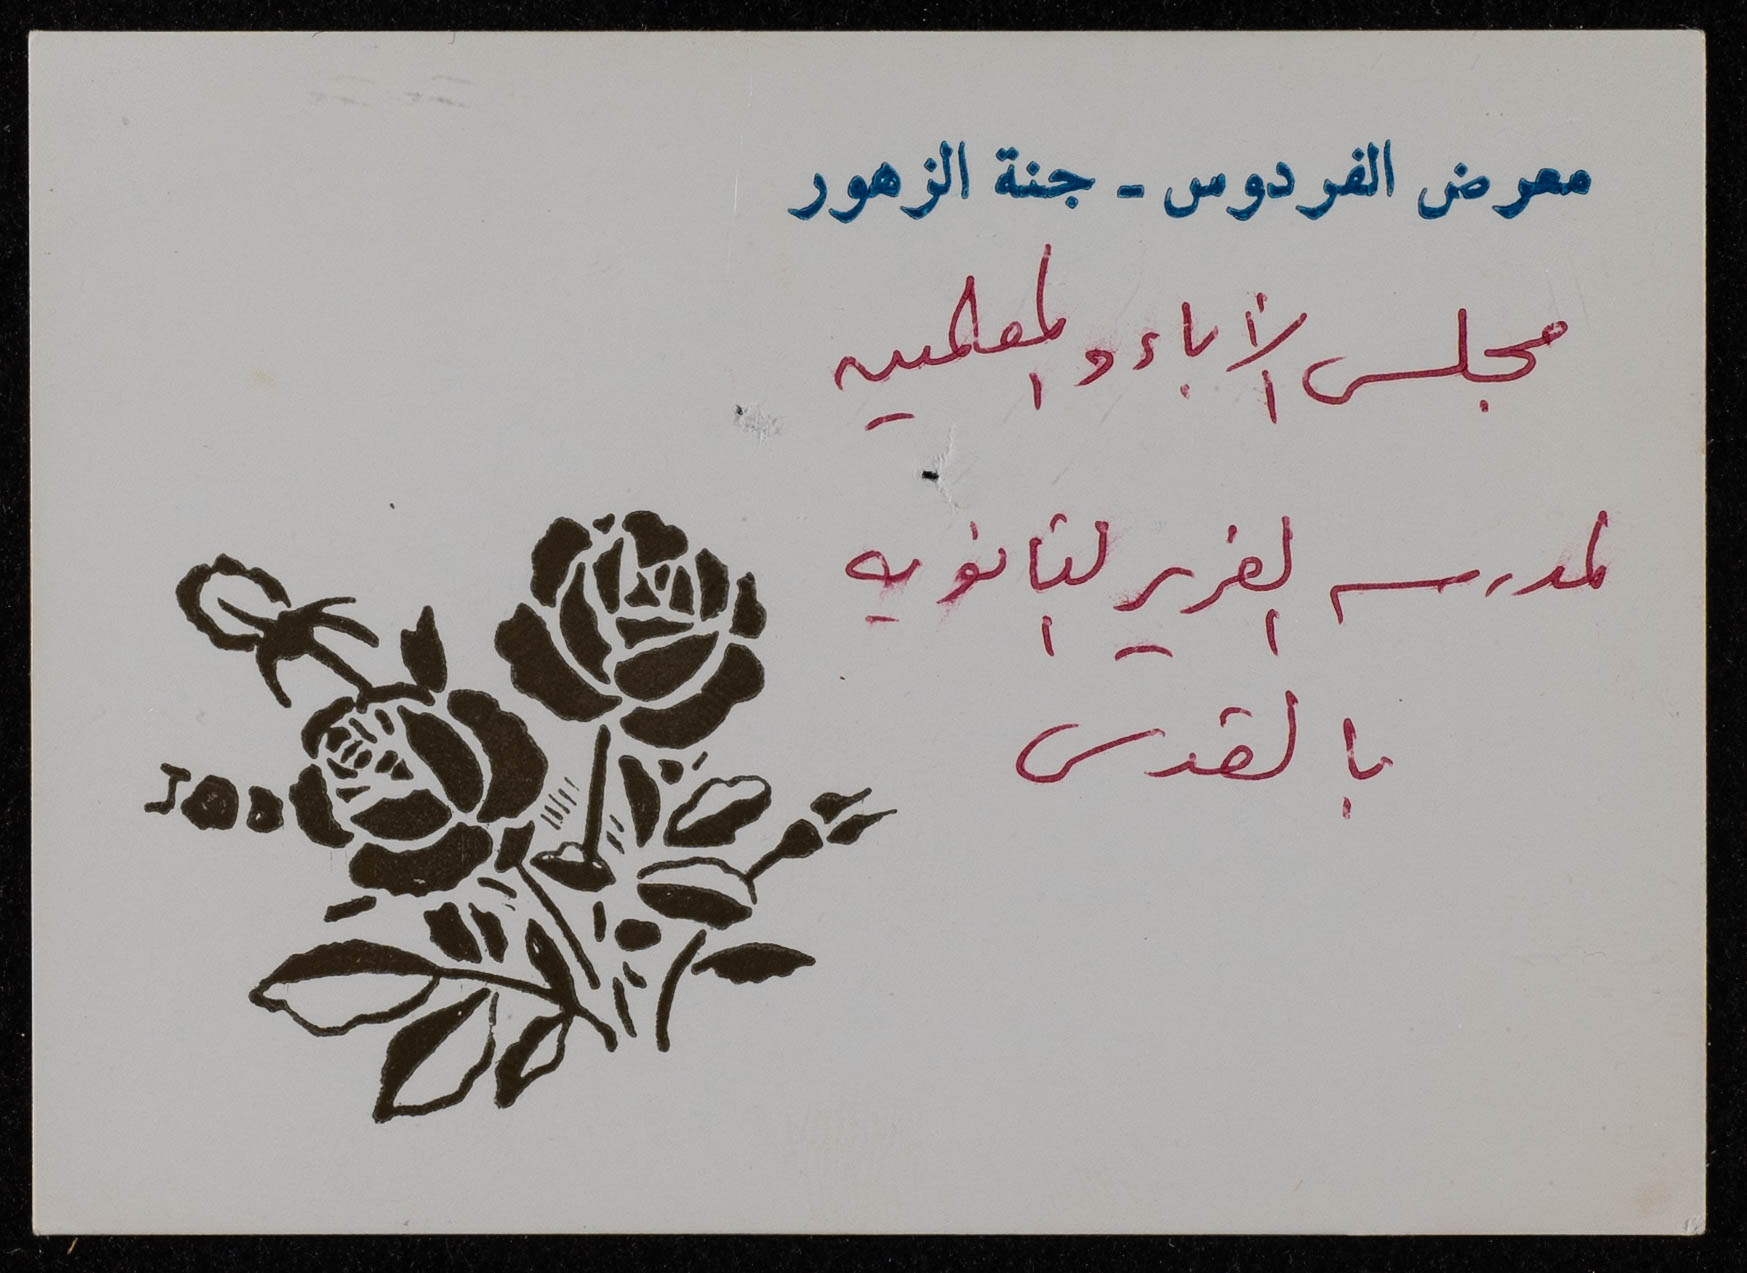 معرض الفردوس - جنة الزهور
مجلس الآباء والمعلمين
لمدرسه الفرير الثانويه
بالقدس